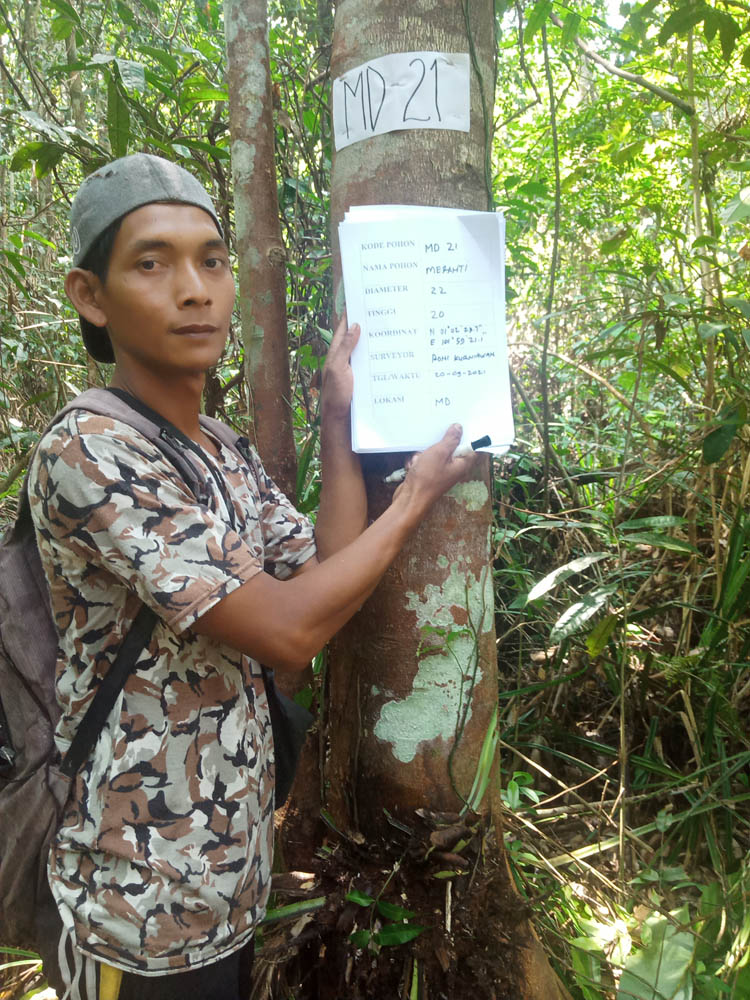 MD-21
KODE POHON MD 21
NAMA POHON MERANTI
DIAMETER 22
TINGGI 20
KOORDINAT N 01°02'
E 101°59'21.1
SURVEYOR KURNIAWAN
TGL/WAKTU 20-09-2021
LOKASI MD